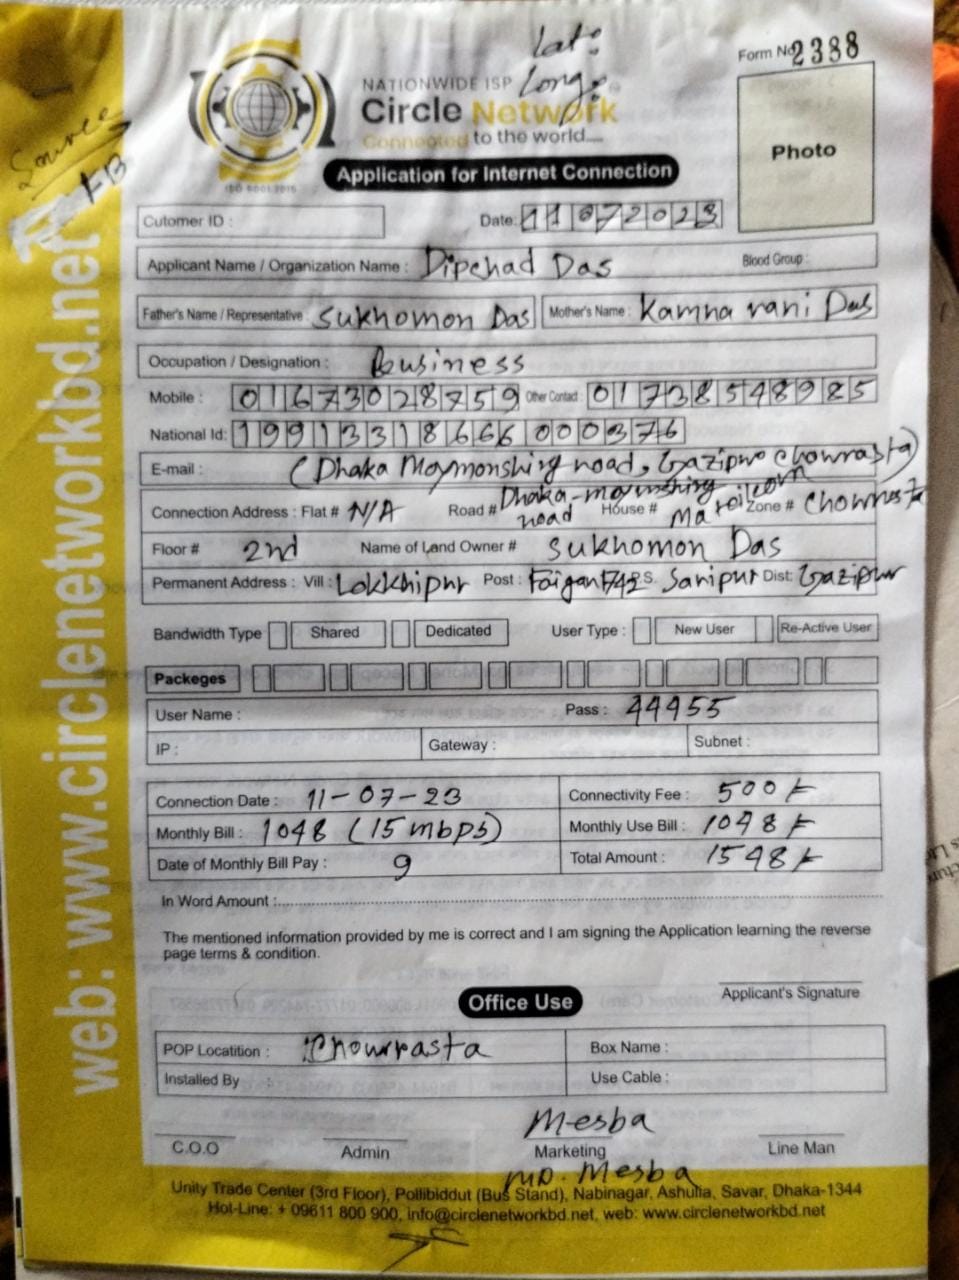 lat:
Form No 2388
NATIONWIDE ISP Long:
Circle Network
Connected to the world....
ISO 9001:2015
Source FB
Photo
Application for Internet Connection
Cutomer ID : Date: 11072023
Applicant Name / Organization Name : Dipchad Das Blood Group :
Father's Name / Representative : Sukhomon Das Mother's Name : Kamna rani Das
Occupation / Designation : Business
Mobile : 01673028759 Other Contact : 01738548985
National Id: 19913318666000376
E-mail : (Dhaka Moymonshing road, Gazipur chowrasta)
Connection Address : Flat # N/A Road # Dhaka-moymonshing road House # Zone # Chowrasta
Floor # 2nd Name of Land Owner # Sukhomon Das
Permanent Address : Vill : Lokkhipur Post : P.S. Dist: Gazipur
Bandwidth Type Shared Dedicated User Type : New User Re-Active User
Packeges
User Name : Pass : 44955
IP : Gateway : Subnet :
Connection Date : 11-07-23 Connectivity Fee : 500/-
Monthly Bill : 1048 (15 mbps) Monthly Use Bill : 1048/-
Date of Monthly Bill Pay : 9 Total Amount : 1548/-
In Word Amount :
The mentioned information provided by me is correct and I am signing the Application learning the reverse
page terms & condition.
Applicant's Signature
Office Use
POP Locatition : Chowrasta Box Name :
Installed By : Use Cable :
Mesba
C.O.O Admin Marketing Line Man
MD. Mesba
Unity Trade Center (3rd Floor), Pollibiddut (Bus Stand), Nabinagar, Ashulia, Savar, Dhaka-1344
Hot-Line: + 09611 800 900, info@circlenetworkbd.net, web: www.circlenetworkbd.net
web: www.circlenetworkbd.net